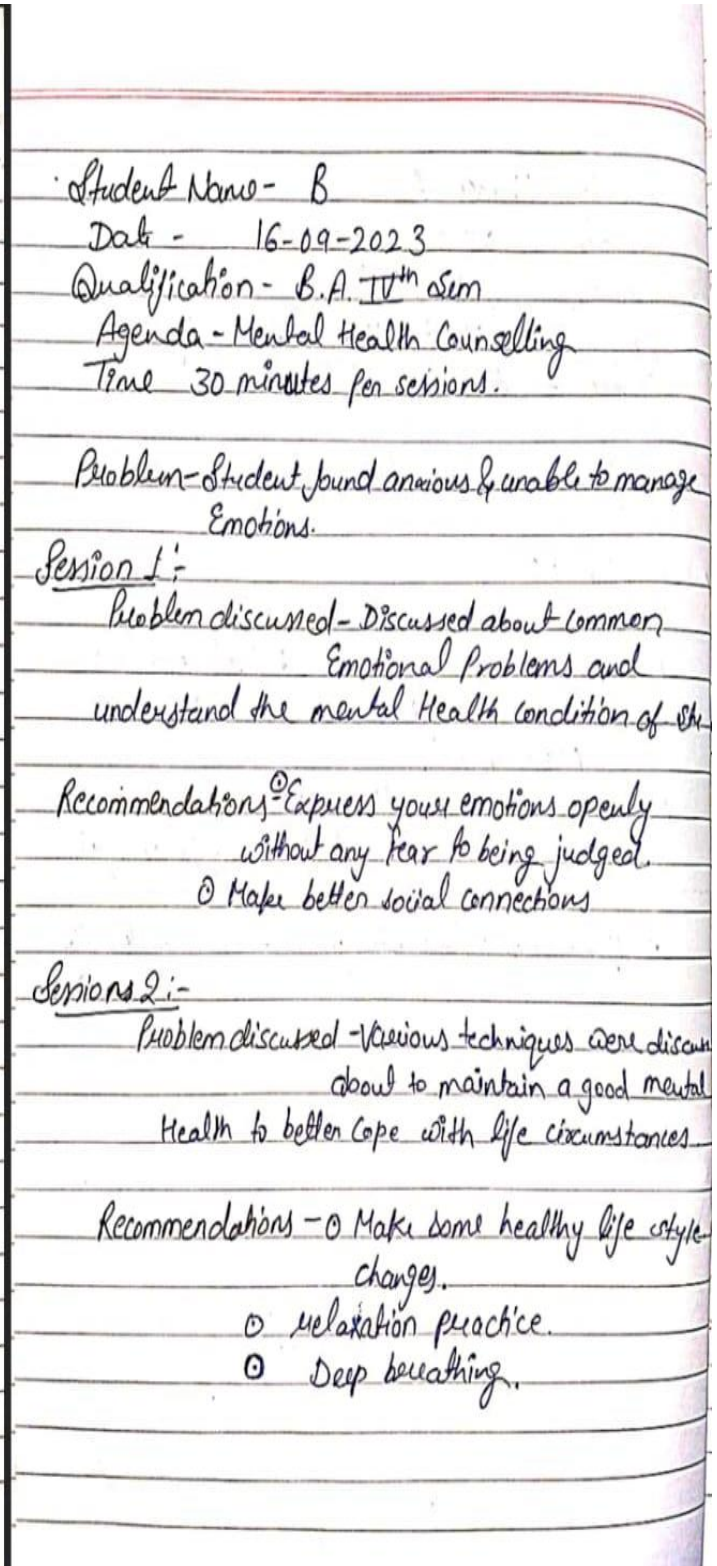 Student Name - B
Date - 16-09-2023
Qualification - B.A. IVth Sem
Agenda - Mental Health Counselling
Time 30 minutes per sessions.
Problem - Student found anxious & unable to manage
Emotions.
Session 1 :-
Problem discussed - Discussed about common
Emotional Problems and
understand the mental Health condition of
Recommendations - ⊙ Express your emotions openly
without any fear to being judged.
⊙ Make better social connections
Sessions 2 :-
Problem discussed - Various techniques were discuss
about to maintain a good mental
Health to better cope with life circumstances
Recommendations - ⊙ Make some healthy life style
changes.
⊙ relaxation practice.
⊙ Deep breathing.